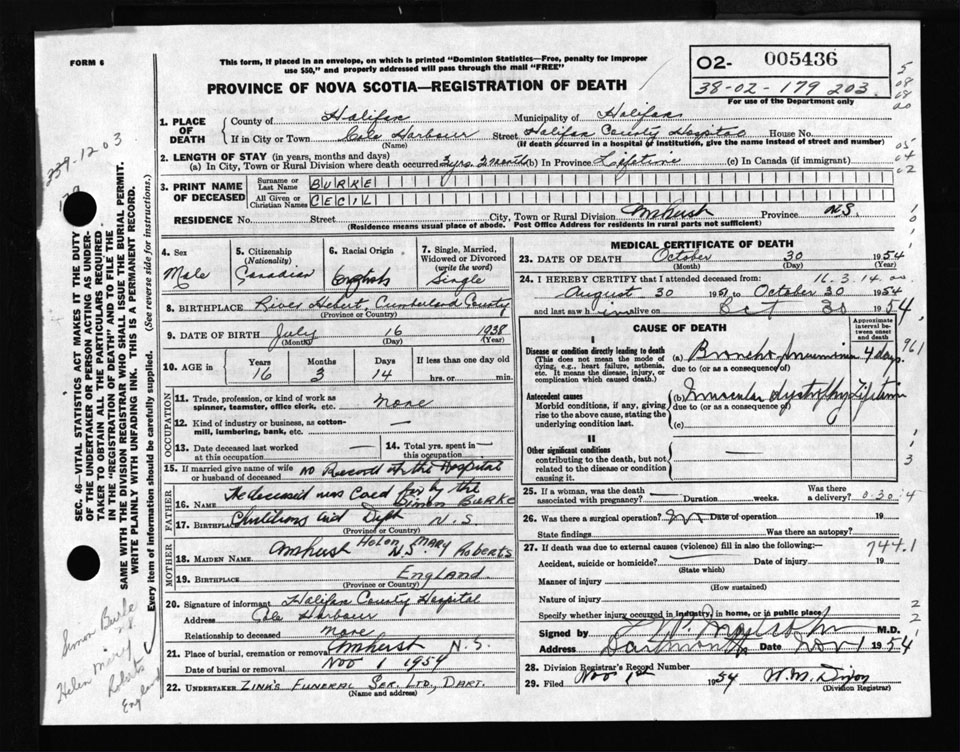 FORM 6
This form, if placed in an envelope, on which is printed "Dominion Statistics—Free, penalty for improper
use $50," and properly addressed will pass through the mail "FREE"
PROVINCE OF NOVA SCOTIA—REGISTRATION OF DEATH
02- 005436
38-02-179 203.
For use of the Department only
1. PLACE OF DEATH
County of Halifax Municipality of Halifax
If in City or Town Cole Harbour Street Halifax County Hospital House No.
(Name) (If death occurred in a hospital or institution, give the name instead of street and number)
2. LENGTH OF STAY (in years, months and days)
(a) In City, Town or Rural Division where death occurred 3 yrs. 2 months (b) In Province Lifetime (c) In Canada (if immigrant)
3. PRINT NAME OF DECEASED
Surname or Last Name BURKE
All Given or Christian Names CECIL
RESIDENCE No. Street City, Town or Rural Division Amherst Province N.S.
(Residence means usual place of abode. Post Office Address for residents in rural parts not sufficient)
4. Sex Male
5. Citizenship (Nationality) Canadian
6. Racial Origin English
7. Single, Married, Widowed or Divorced (write the word) Single
8. BIRTHPLACE River Hebert, Cumberland County
(Province or Country)
9. DATE OF BIRTH July 16 1938
(Month) (Day) (Year)
10. AGE in Years 16 Months 3 Days 14 If less than one day old
hrs. or min.
OCCUPATION
11. Trade, profession, or kind of work as
spinner, teamster, office clerk, etc. none
12. Kind of industry or business, as cotton-
mill, lumbering, bank, etc. —
13. Date deceased last worked at this occupation —
14. Total yrs. spent in this occupation —
15. If married give name of wife
or husband of deceased no Record at the Hospital
The deceased was cared for by the
FATHER
16. Name Simon BURKE
17. Birthplace Childrens aid Dept N.S.
(Province or Country)
MOTHER
18. MAIDEN NAME Amherst N.S. Helen MARY Roberts
19. BIRTHPLACE England
(Province or Country)
20. Signature of informant Halifax County Hospital
Address Cole Harbour
Relationship to deceased none
21. Place of burial, cremation or removal Amherst N.S.
Date of burial or removal Nov 1 1954
22. UNDERTAKER ZINK'S FUNERAL SER. LTD., DART.
(Name and address)
MEDICAL CERTIFICATE OF DEATH
23. DATE OF DEATH October 30 1954
(Month) (Day) (Year)
16.3.14.
24. I HEREBY CERTIFY that I attended deceased from:
August 30 1951 to October 30 1954
and last saw him alive on Oct 30 1954.
CAUSE OF DEATH
Approximate interval between onset and death
I
Disease or condition directly leading to death
(This does not mean the mode of dying, e.g., heart failure, asthenia, etc. It means the disease, injury, or complication which caused death.)
(a) Broncho pneumonia 4 days.
due to (or as a consequence of)
Antecedent causes
Morbid conditions, if any, giving rise to the above cause, stating the underlying condition last.
(b) muscular dystrophy Lifetime
due to (or as a consequence of)
(c)
II
Other significant conditions
contributing to the death, but not related to the disease or condition causing it.
—
25. If a woman, was the death associated with pregnancy? Duration weeks. Was there a delivery? 0-30.4
26. Was there a surgical operation? no Date of operation 19
State findings Was there an autopsy?
27. If death was due to external causes (violence) fill in also the following:— 744.1
Accident, suicide or homicide? Date of injury 19
(State which)
Manner of injury
(How sustained)
Nature of injury
Specify whether injury occurred in industry, in home, or in public place
Signed by M.D.
Address Dartmouth Date Nov 1 1954
28. Division Registrar's Record Number
29. Filed Nov 1st 1954 W. M. Dixon
(Division Registrar)
SEC. 46—VITAL STATISTICS ACT MAKES IT THE DUTY
OF THE UNDERTAKER OR PERSON ACTING AS UNDER-
TAKER TO OBTAIN ALL THE PARTICULARS REQUIRED
IN THE "REGISTRATION OF DEATH" AND TO FILE THE
SAME WITH THE DIVISION REGISTRAR WHO SHALL ISSUE THE BURIAL PERMIT.
WRITE PLAINLY WITH UNFADING INK. THIS IS A PERMANENT RECORD.
Every item of information should be carefully supplied. (See reverse side for instructions.)
Simon Burke
Helen Mary
Roberts
England